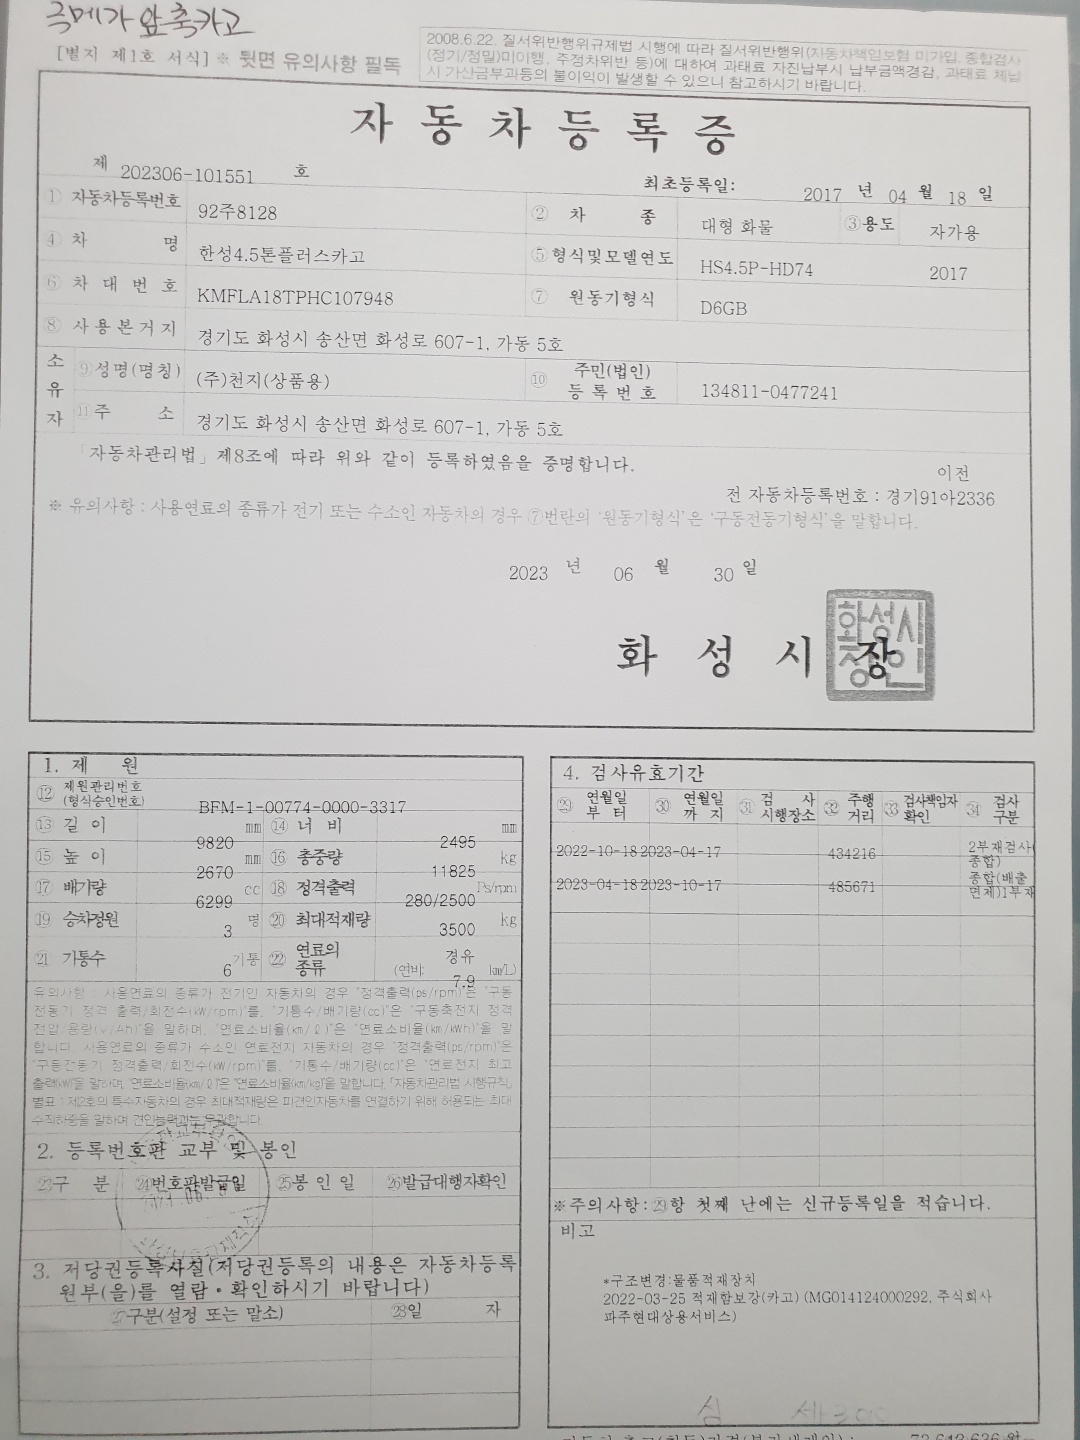 극메가 암축카고
[별지 제1호 서식] ※ 뒷면 유의사항 필독
2008.6.22. 질서위반행위규제법 시행에 따라 질서위반행위(자동차책임보험 미가입, 종합검사
(정기/정밀)미이행, 주정차위반 등)에 대하여 과태료 자진납부시 납부금액경감, 과태료 체납
시 가산금부과등의 불이익이 발생할 수 있으니 참고하시기 바랍니다.
자동차등록증
제 202306-101551 호
최초등록일: 2017 년 04 월 18 일
① 자동차등록번호 92주8128 ② 차 종 대형 화물 ③용도 자가용
④ 차 명 한성4.5톤플러스카고 ⑤ 형식및모델연도 HS4.5P-HD74 2017
⑥ 차대번호 KMFLA18TPHC107948 ⑦ 원동기형식 D6GB
⑧ 사용본거지 경기도 화성시 송산면 화성로 607-1, 가동 5호
소유자 ⑨성명(명칭) (주)천지(상품용) ⑩ 주민(법인) 등록번호 134811-0477241
⑪주 소 경기도 화성시 송산면 화성로 607-1, 가동 5호
「자동차관리법」 제8조에 따라 위와 같이 등록하였음을 증명합니다.
이전
전 자동차등록번호 : 경기91아2336
※ 유의사항 : 사용연료의 종류가 전기 또는 수소인 자동차의 경우 ⑦번란의 '원동기형식'은 '구동전동기형식'을 말합니다.
2023 년 06 월 30 일
화성시장
화성시
장인
1. 제 원
⑫ 제원관리번호 (형식승인번호) BFM-1-00774-0000-3317
⑬ 길이 9820 mm ⑭ 너비 2495 mm
⑮ 높이 2670 mm ⑯ 총중량 11825 kg
⑰ 배기량 6299 cc ⑱ 정격출력 280/2500 Ps/rpm
⑲ 승차정원 3 명 ⑳ 최대적재량 3500 kg
㉑ 기통수 6 기통 ㉒ 연료의 종류 경유 (연비: 7.9 km/L)
유의사항 : 사용연료의 종류가 전기인 자동차의 경우 "정격출력(ps/rpm)"은 "구동
전동기 정격 출력/회전수(kW/rpm)"를, "기통수/배기량(cc)"은 "구동축전지 정격
전압/용량(V/Ah)"을 말하며, "연료소비율(km/ℓ)"은 "연료소비율(km/kWh)"을 말
합니다. 사용연료의 종류가 수소인 연료전지 자동차의 경우 "정격출력(ps/rpm)"은
"구동전동기 정격출력/회전수(kW/rpm)"를, "기통수/배기량(cc)"은 "연료전지 최고
출력(kW)"을 말하며, "연료소비율(km/ℓ)"은 "연료소비율(km/kg)"을 말합니다. 「자동차관리법 시행규칙」
별표 1 제2호의 특수자동차의 경우 최대적재량은 피견인자동차를 연결하기 위해 허용되는 최대
수직하중을 말하며 견인능력과는 무관합니다.
2. 등록번호판 교부 및 봉인
㉓구 분 ㉔번호판발급일 ㉕봉인일 ㉖발급대행자확인
3. 저당권등록사실(저당권등록의 내용은 자동차등록
원부(을)를 열람·확인하시기 바랍니다)
㉗구분(설정 또는 말소) ㉘일 자
4. 검사유효기간
㉙ 연월일 부터 ㉚ 연월일 까지 ㉛ 검사 시행장소 ㉜ 주행 거리 ㉝ 검사책임자 확인 ㉞ 검사 구분
2022-10-18 2023-04-17 434216 2부재검사(종합)
2023-04-18 2023-10-17 485671 종합(배출면제)1부재
※주의사항: ㉙항 첫째 난에는 신규등록일을 적습니다.
비고
*구조변경:물품적재장치
2022-03-25 적재함보강(카고) (MG014124000292, 주식회사
파주현대상용서비스)